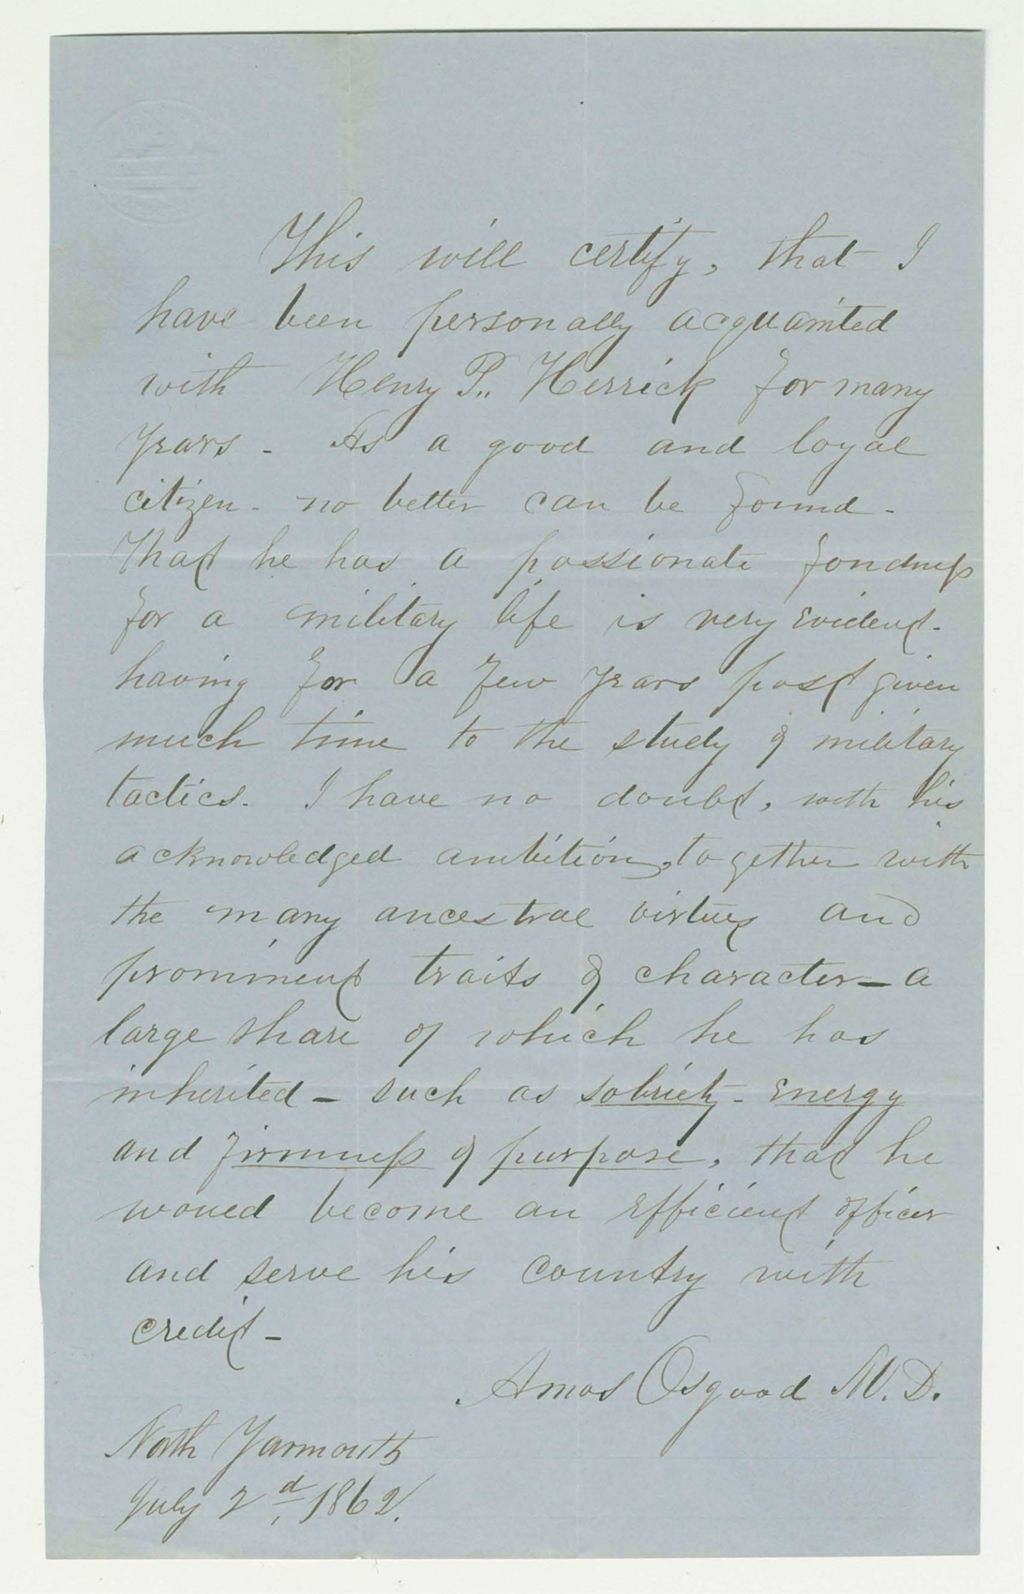 This will certify, that I
have been personally acquainted
with Henry P. Herrick for many
years - As a good and loyal
citizen - no better can be found -
That he has a passionate fondness
for a military life is very evident -
having for a few years past given
much time to the study of military
tactics. I have no doubt, with his
acknowledged ambition, together with
the many ancestral virtues and
prominent traits of character - a
large share of which he has
inherited - such as sobriety - energy
and firmness of purpose, that he
would become an efficient officer
and serve his country with
credit -
Amos Osgood M.D.
North Yarmouth
July 2d, 1862.